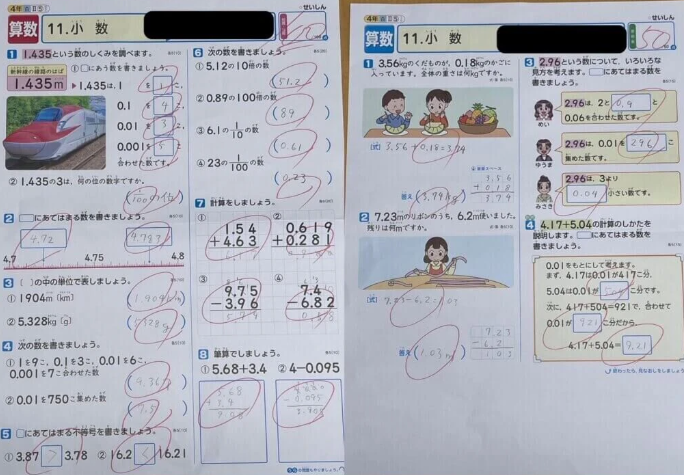 4年
算数
11.小 数
せいしん
1 1.435という数のしくみを調べます。
① □にあう数を書きましょう。
新幹線の線路のはば
1.435m
▶1.435は、1を 1 こ、
0.1を 4 こ、
0.01を 3 こ、
0.001を 5 こ
合わせた数です。
② 1.435の3は、何の位の数字ですか。
2 □にあてはまる数を書きましょう。
4.72
4.783
4.7 4.75 4.8
3 ( )の中の単位で表しましょう。
① 1904m〔km〕
② 5.328kg〔g〕
(5328g)
4 次の数を書きましょう。
① 1を9こ、0.1を3こ、0.01を6こ、
0.001を7こ合わせた数
② 0.01を750こ集めた数
(7.5)
5 □にあてはまる不等号を書きましょう。
① 3.87 > 3.78 ② 16.2 < 16.21
6 次の数を書きましょう。
① 5.12の10倍の数
(51.2)
② 0.89の100倍の数
(89)
③ 6.1の1/10の数
(0.61)
④ 23の1/100の数
(0.23)
7 計算をしましょう。
① 1.54
+4.63
② 0.619
+0.281
③ 9.75
-3.96
④ 7.4
-6.82
8 筆算でしましょう。
① 5.68+3.4 ② 4-0.095
5.68
9.08
-0.095
3.905
4年
算数
11.小 数
せいしん
50
1 3.56kgのくだものが、0.18kgのかごに
入っています。全体の重さは何kgですか。
(式) 3.56+0.18=3.74
3.56
+0.18
3.74
答え (3.74kg)
2 7.23mのリボンのうち、6.2m使いました。
残りは何mですか。
(式) 7.23-6.2=1.03
7.23
-6.2
1.03
答え (1.03m)
3 2.96という数について、いろいろな
見方を考えます。□にあてはまる数を
書きましょう。
2.96は、2と 0.9 と
0.06を合わせた数です。
めい
2.96は、0.01を 296 こ
集めた数です。
ゆうま
2.96は、3より
0.04 小さい数です。
みさき
4 4.17+5.04の計算のしかたを
説明します。□にあてはまる数を
書きましょう。
0.01をもとにして考えます。
まず、4.17は0.01が417こ分、
5.04は0.01が 504 こ分です。
次に、417+504=921で、合わせて
0.01が 921 こ分だから、
4.17+5.04= 9.21